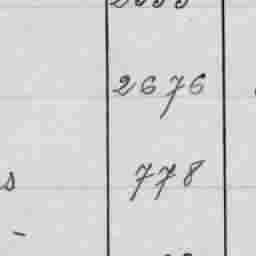 2676
s 778